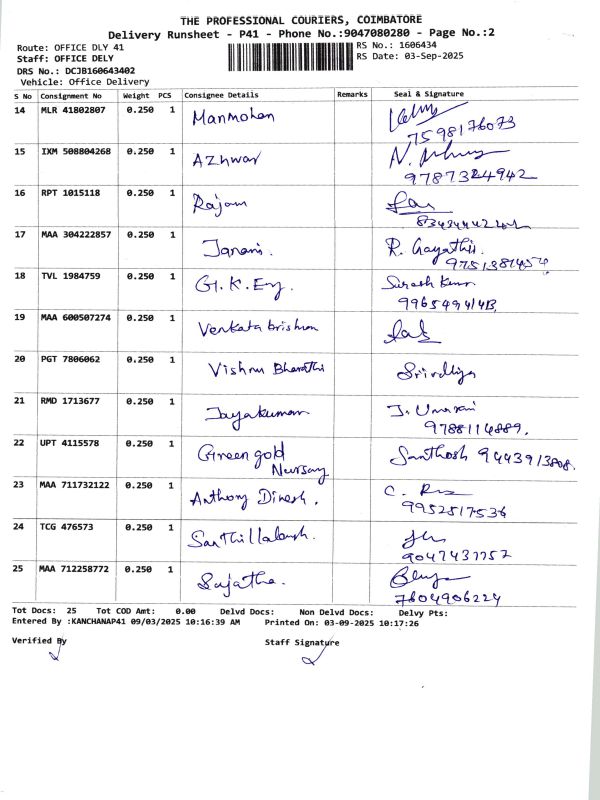 THE PROFESSIONAL COURIERS, COIMBATORE
Delivery Runsheet - P41 - Phone No.:9047080280 - Page No.:2
Route: OFFICE DLY 41 RS No.: 1606434
Staff: OFFICE DELY RS Date: 03-Sep-2025
DRS No.: DCJB160643402
Vehicle: Office Delivery
S No Consignment No Weight PCS Consignee Details Remarks Seal & Signature
14 MLR 41802807 0.250 1 Manmohan
7598176073
15 IXM 508804268 0.250 1 Azhwar
9787324942
16 RPT 1015118 0.250 1 Rajam
17 MAA 304222857 0.250 1 Janani. R. Gayathri.
18 TVL 1984759 0.250 1 G.K. Suresh
19 MAA 600507274 0.250 1 Venkata krishnan
20 PGT 7806062 0.250 1 Vishnu Bharathi Srividhya
21 RMD 1713677 0.250 1 Jayakumar J. Umarani
9788114889.
22 UPT 4115578 0.250 1 Green gold Santhosh 9443913808.
Nursary
23 MAA 711732122 0.250 1 Anthony Dinesh. C.
9952517536
24 TCG 476573 0.250 1
9047437757
25 MAA 712258772 0.250 1 Sujatha.
7604906224
Tot Docs: 25 Tot COD Amt: 0.00 Delvd Docs: Non Delvd Docs: Delvy Pts:
Entered By :KANCHANAP41 09/03/2025 10:16:39 AM Printed On: 03-09-2025 10:17:26
Verified By Staff Signature